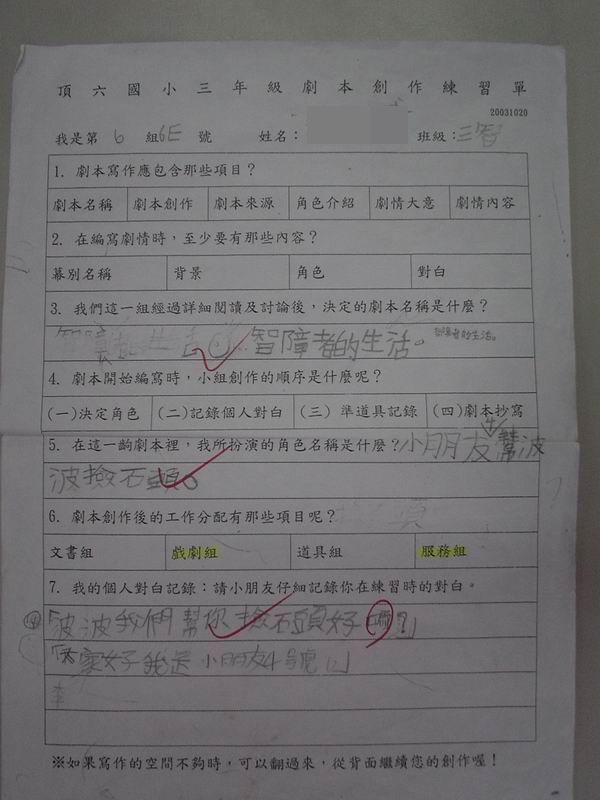 頂六國小三年級劇本創作練習單
20031020
我是第 6 組 6E 號 姓名： 班級：三智
1. 劇本寫作應包含那些項目？
劇本名稱 劇本創作 劇本來源 角色介紹 劇情大意 劇情內容
2. 在編寫劇情時，至少要有那些內容？
幕別名稱 背景 角色 對白
3. 我們這一組經過詳細閱讀及討論後，決定的劇本名稱是什麼？
智障者的生活。
4. 劇本開始編寫時，小組創作的順序是什麼呢？
(一)決定角色 (二)記錄個人對白 (三) 準道具記錄 (四)劇本抄寫
5. 在這一齣劇本裡，我所扮演的角色名稱是什麼？小朋友4幫波
波撿石頭。
6. 劇本創作後的工作分配有那些項目呢？
文書組 戲劇組 道具組 服務組
7. 我的個人對白記錄：請小朋友仔細記錄你在練習時的對白。
「波波我們幫你撿石頭好嗎？」
「大家好我是小朋友4號」
李
※如果寫作的空間不夠時，可以翻過來，從背面繼續您的創作喔！